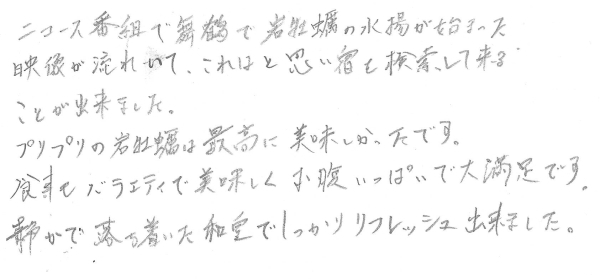 ニュース番組で舞鶴で岩牡蠣の水揚が始まった
映像が流れいて、これはと思い宿を検索して来る
ことが出来ました。
プリプリの岩牡蠣は最高に美味しかったです。
食事もバラエティで美味しくお腹いっぱいで大満足です。
静かで落ち着いた和室でしっかりリフレッシュ出来ました。